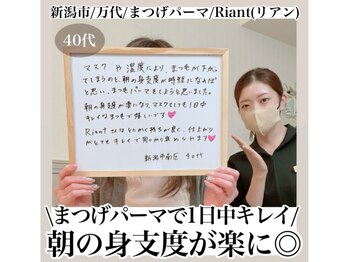 新潟市/万代/まつげパーマ/Riant(リアン)
40代
マスクや湿度により、まつ毛が下がっ
てしまうのと、朝の身支度が時短になれば
と思い、まつ毛パーマをしようと思いました。
朝の身支度が楽になり、マスクをしても1日中
キレイなまつ毛で嬉しいです
Riantさんはとにかく持ちが良く、仕上がり
がとてもキレイで
新潟市南区 40代
\まつげパーマで1日中キレイ/
朝の身支度が楽に◎